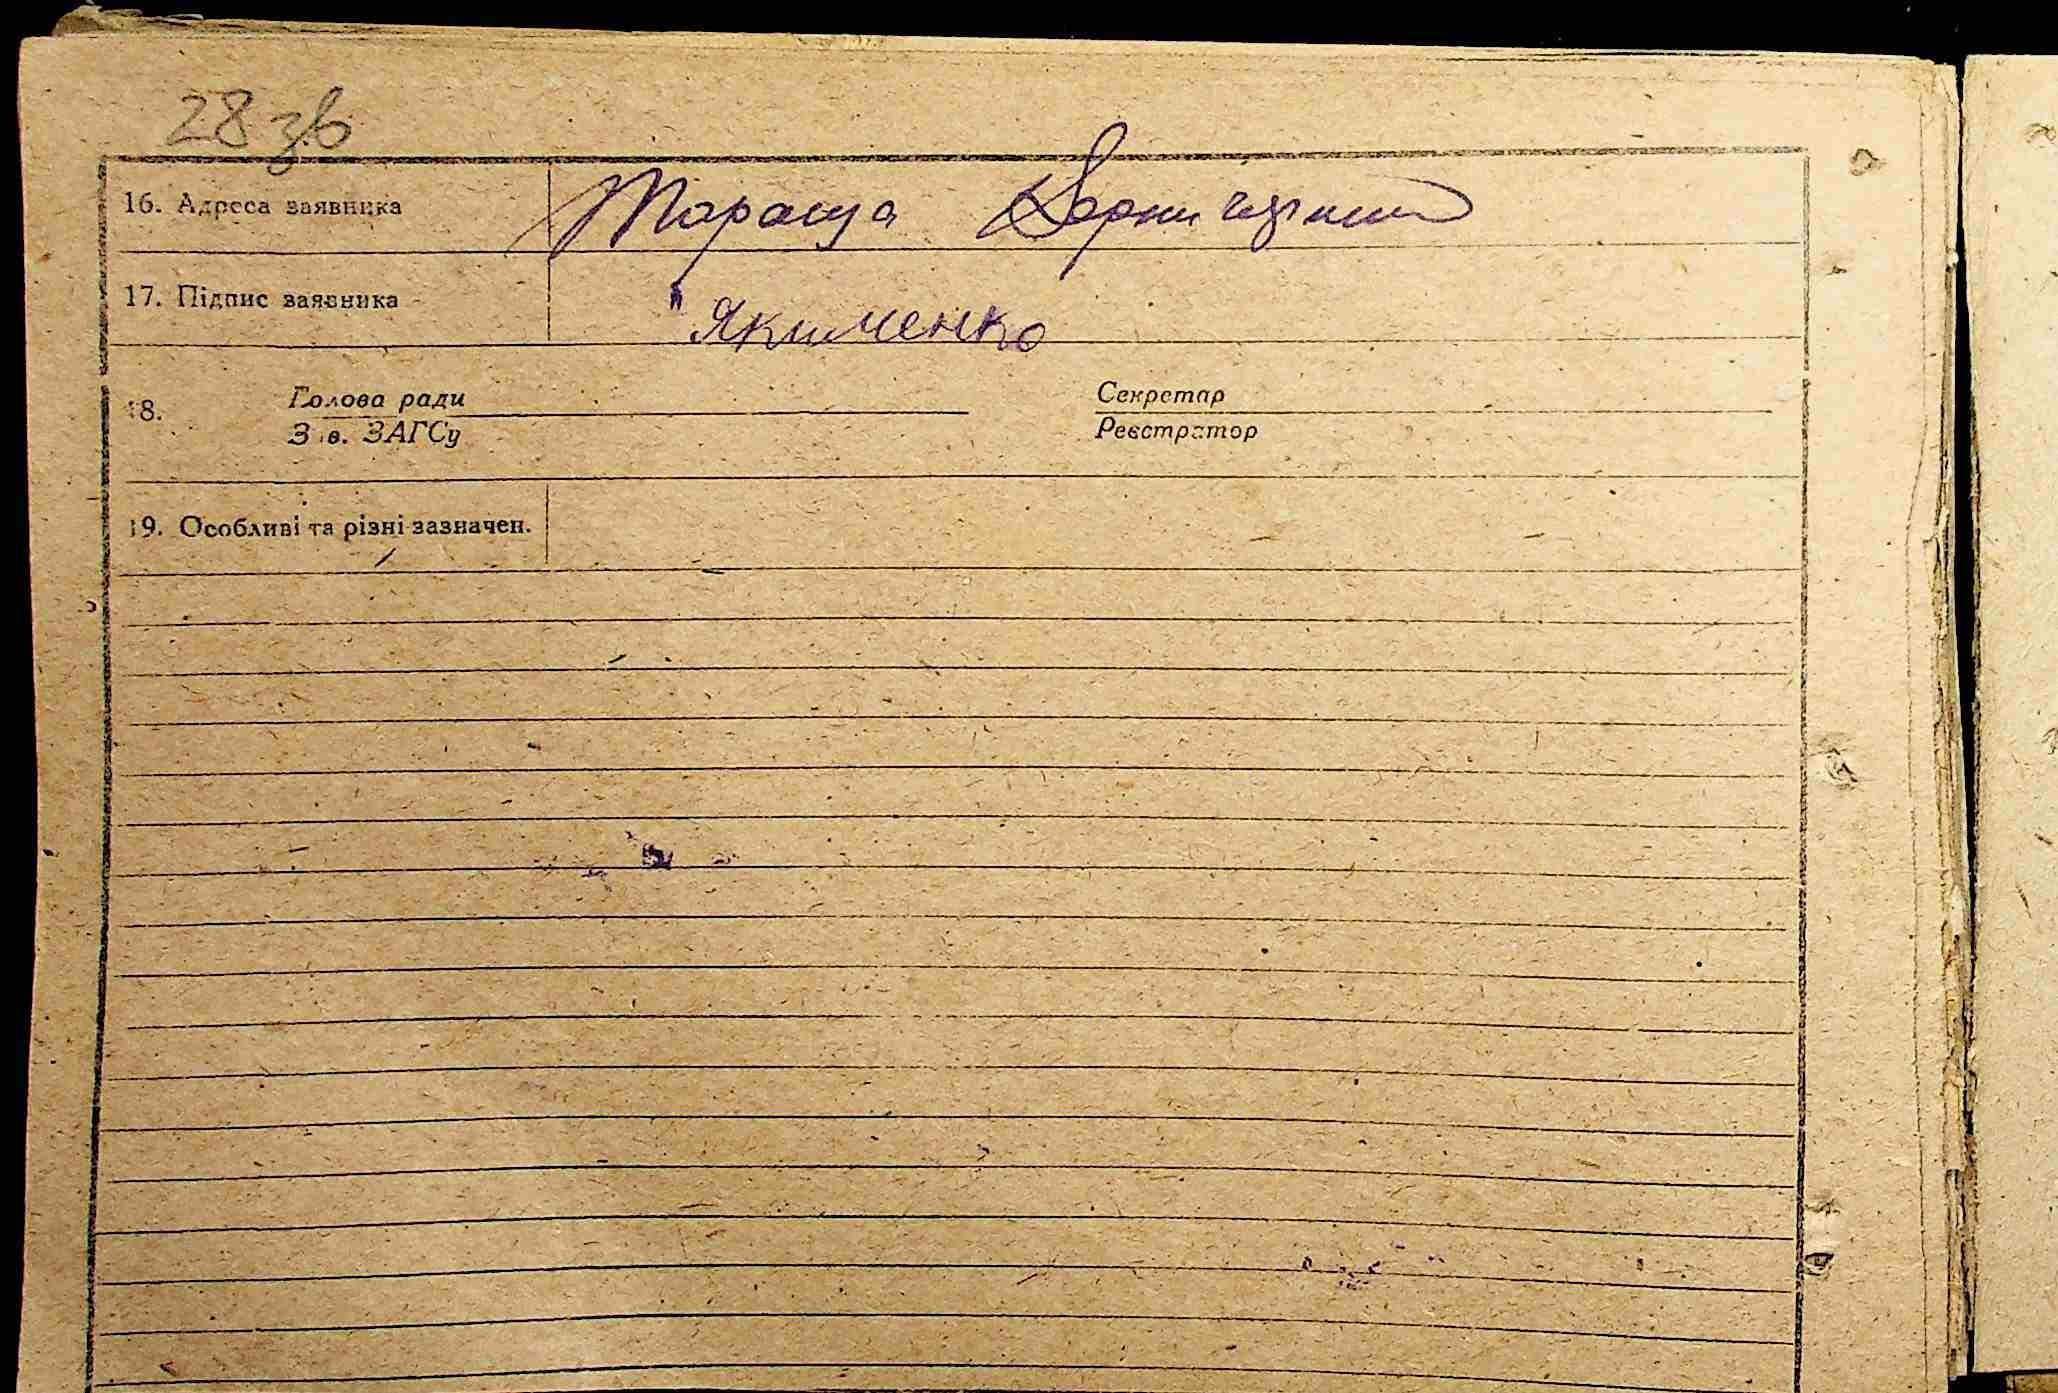 28 зв
16. Адреса заявника Тараща
17. Підпис заявника Якименко
18. Голова ради Секретар
Зав. ЗАГСу Реєстратор
19. Особливі та різні зазначен.